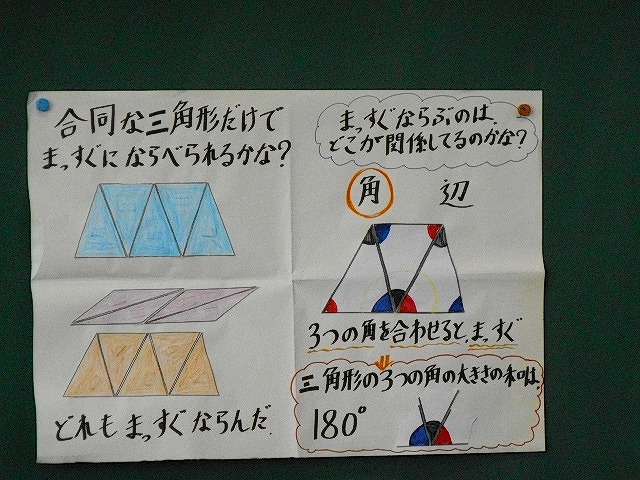 合同な三角形だけで
まっすぐにならべられるかな?
どれもまっすぐならんだ.
まっすぐならぶのは、
どこが関係してるのかな?
角 辺
3つの角を合わせると、まっすぐ
三角形の3つの角の大きさの和は、
180°